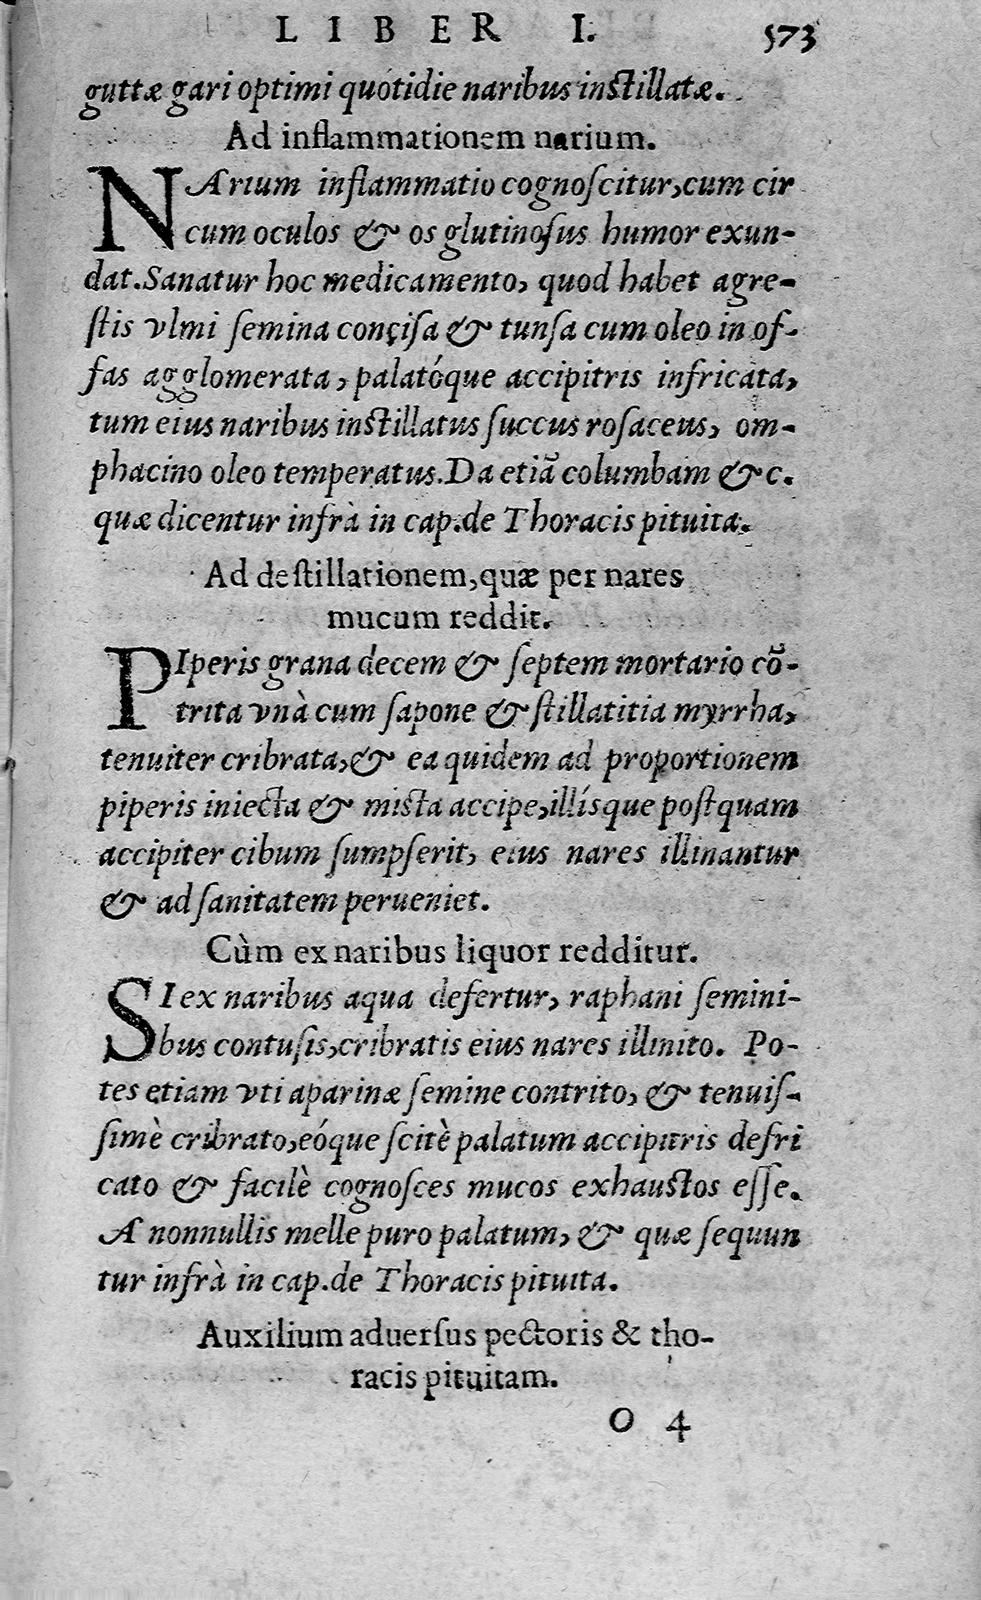 LIBER I. 573
guttæ gari optimi quotidie naribus instillatæ.
Ad inflammationem narium.
NArium inflammatio cognoſcitur, cum cir
cum oculos & os glutinoſus humor exun-
dat. Sanatur hoc medicamento, quod habet agre-
ſtis vlmi ſemina conciſa & tunſa cum oleo in of-
fas agglomerata, palatóque accipitris infricata,
tum eius naribus instillatus ſuccus roſaceus, om-
phacino oleo temperatus. Da etiā columbam & c.
quæ dicentur infrà in cap. de Thoracis pituita.
Ad deſtillationem, quæ per nares
mucum reddit.
PIperis grana decem & ſeptem mortario cō-
trita vnà cum ſapone & ſtillatitia myrrha,
tenuiter cribrata, & ea quidem ad proportionem
piperis iniecta & mista accipe, illísque poſtquam
accipiter cibum ſumpſerit, eius nares illinantur
& ad ſanitatem perueniet.
Cùm ex naribus liquor redditur.
SI ex naribus aqua defertur, raphani ſemini-
bus contuſis, cribratis eius nares illinito. Po-
tes etiam vti aparinæ ſemine contrito, & tenuiſ-
ſimè cribrato, eóque ſcitè palatum accipitris defri
cato & facilè cognoſces mucos exhaustos eſſe.
A nonnullis melle puro palatum, & quæ ſequun
tur infrà in cap. de Thoracis pituita.
Auxilium aduerſus pectoris & tho-
racis pituitam.
O 4